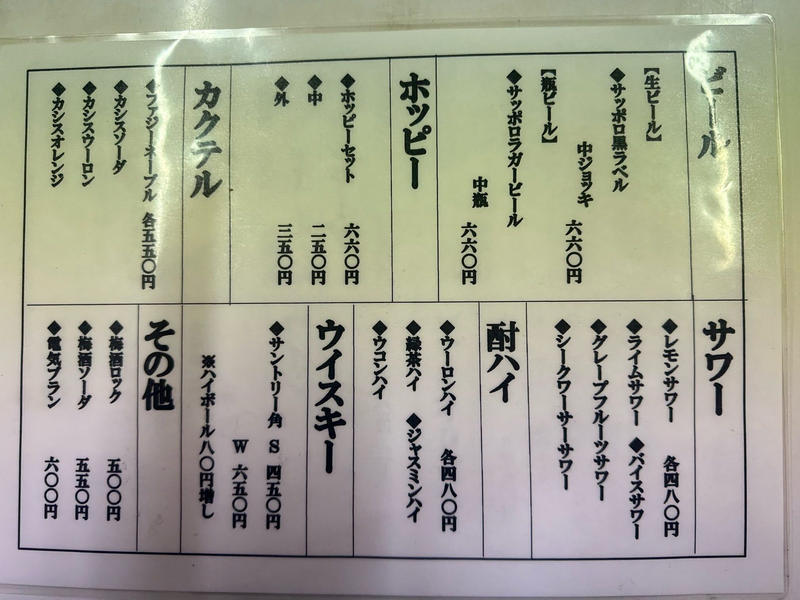 ビール
【生ビール】
◆サッポロ黒ラベル
中ジョッキ 六六〇円
【瓶ビール】
◆サッポロラガービール
中瓶 六六〇円
ホッピー
◆ホッピーセット 六六〇円
◆中 二五〇円
◆外 三五〇円
カクテル
◆ファジーネーブル 各五五〇円
◆カシスソーダ
◆カシスウーロン
◆カシスオレンジ
サワー
◆レモンサワー 各四八〇円
◆ライムサワー ◆バイスサワー
◆グレープフルーツサワー
◆シークワーサーサワー
酎ハイ
◆ウーロンハイ 各四八〇円
◆緑茶ハイ ◆ジャスミンハイ
◆ウコンハイ
ウイスキー
◆サントリー角 S 四五〇円
W 六五〇円
※ハイボール八〇円増し
その他
◆梅酒ロック 五〇〇円
◆梅酒ソーダ 五五〇円
◆電気ブラン 六〇〇円